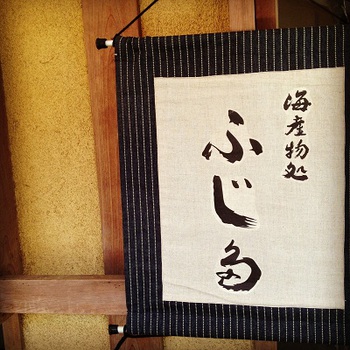 海産物処
ふじ多